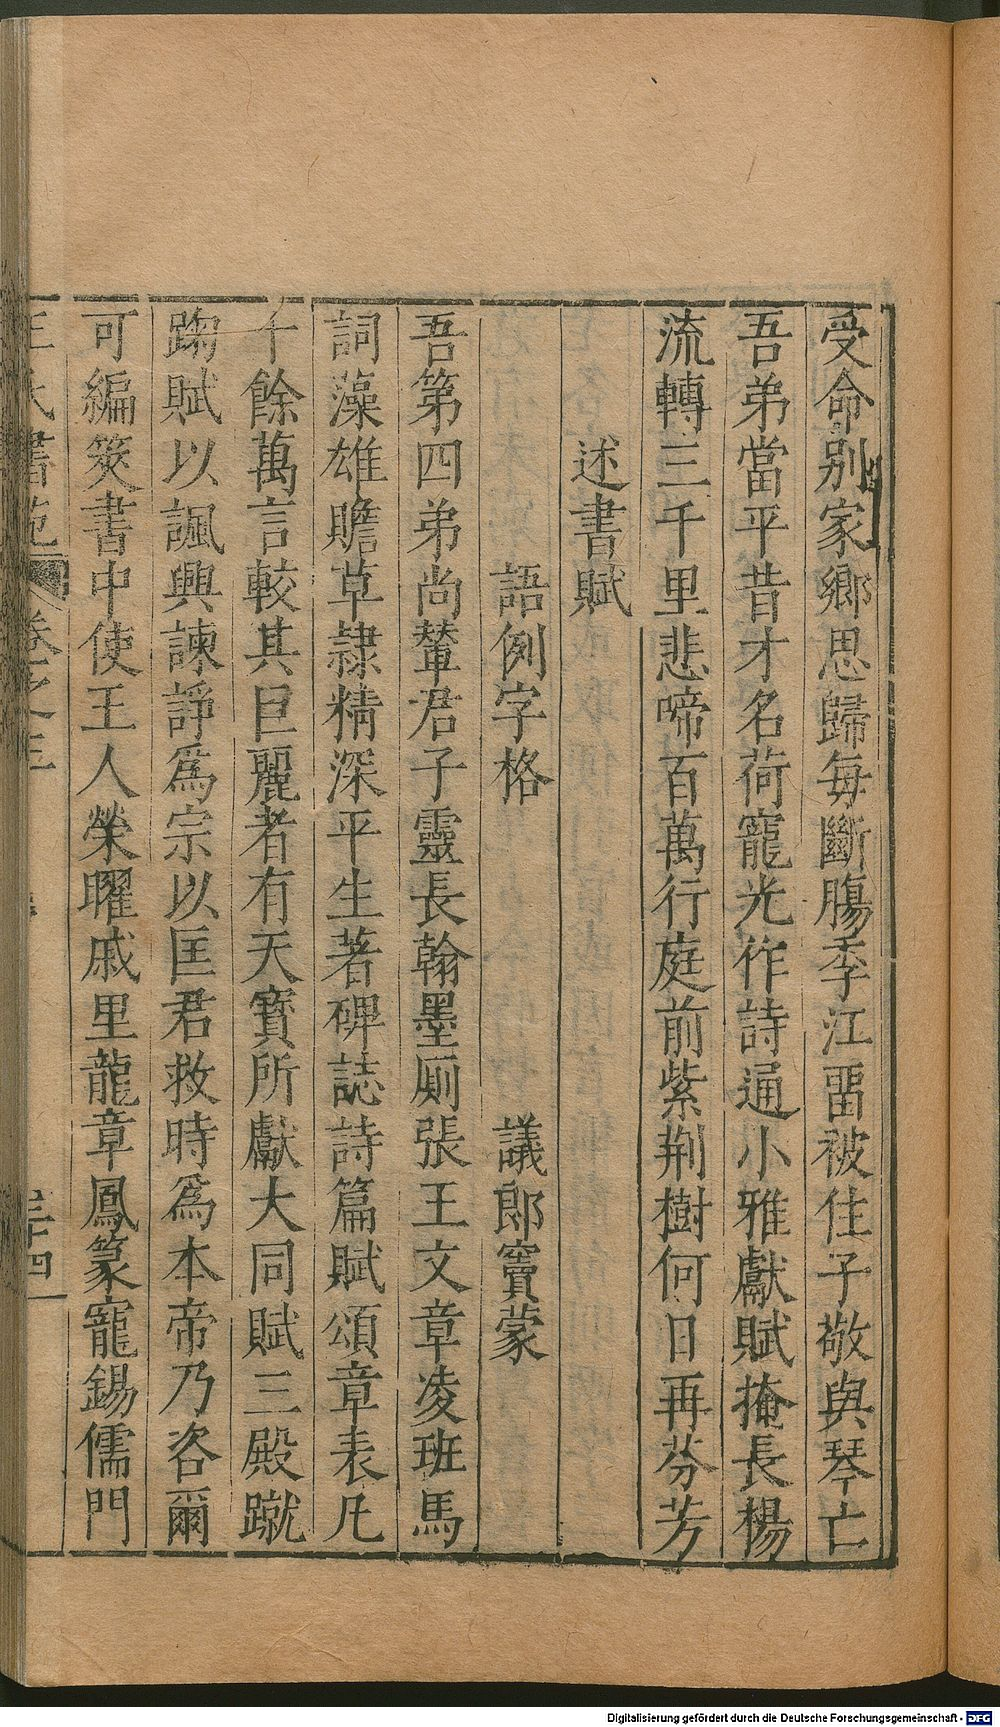 受命別家鄉思歸每斷腸季江畱被住子敬與琴亡
吾弟當平昔才名荷寵光作詩通小雅獻賦掩長楊
流轉三千里悲啼百萬行庭前紫荆樹何日再芬芳
述書賦
語例字格　議郎竇蒙
吾第四弟尚輦君子靈長翰墨厠張王文章凌班馬
詞藻雄贍草隷精深平生著碑誌詩篇賦頌章表凡
十餘萬言較其巨麗者有天寶所獻大同賦三殿蹴
踘賦以諷興諫諍爲宗以匡君救時爲本帝乃咨爾
可編筴書中使王人榮曜戚里龍章鳳篆寵錫儒門
王氏書苑　卷之三　三十四
Digitalisierung gefördert durch die Deutsche Forschungsgemeinschaft - DFG